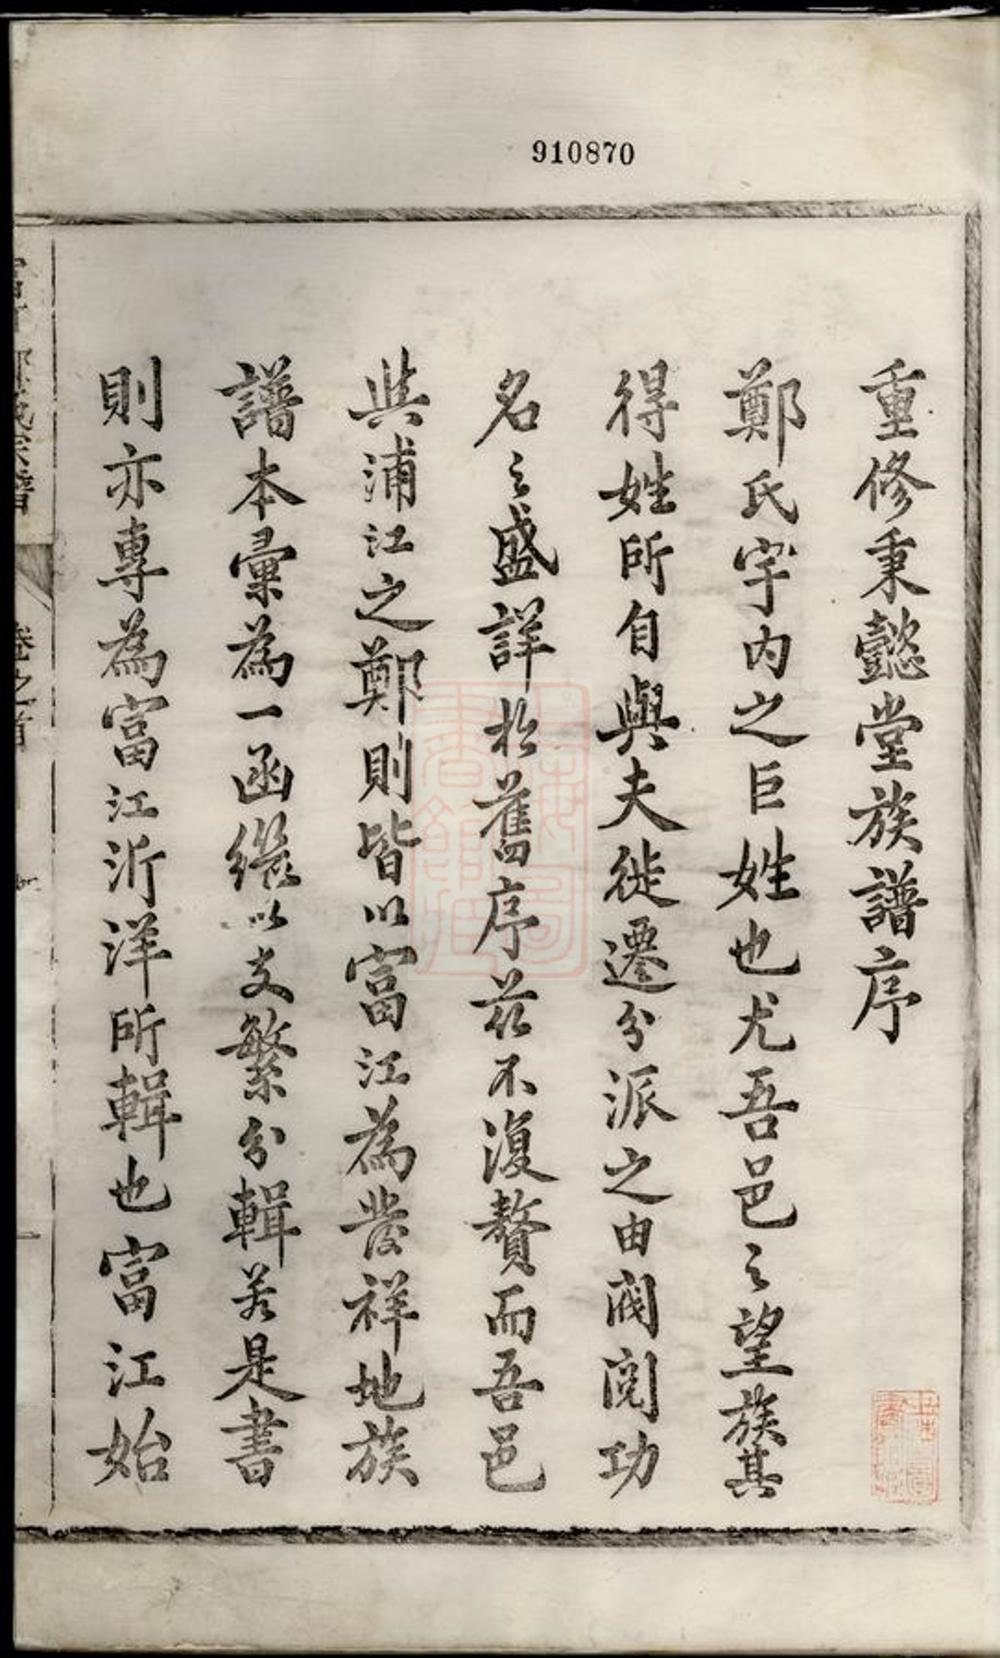 910870
重修秉懿堂族譜序
鄭氏宇内之巨姓也尤吾邑之望族其
得姓所自與夫徙遷分派之由閥閱功
名之盛詳於舊序茲不復贅而吾邑
與浦江之鄭則皆以富江為發祥地族
譜本彙為一函繼以支繁分輯若是書
則亦專為富江沂洋所輯也富江始